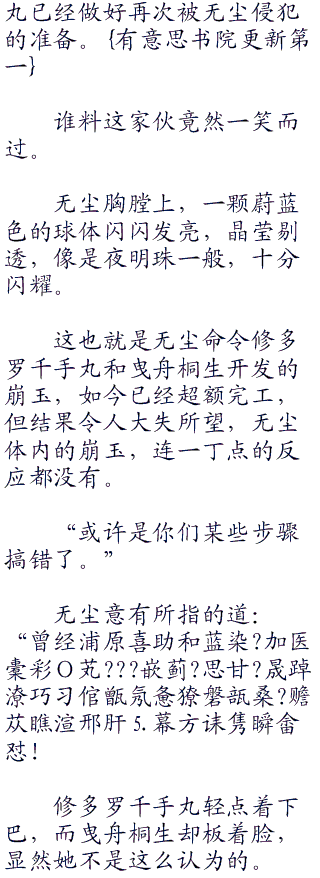 丸已经做好再次被无尘侵犯
的准备。{有意思书院更新第
一}
谁料这家伙竟然一笑而
过。
无尘胸膛上，一颗蔚蓝
色的球体闪闪发亮，晶莹剔
透，像是夜明珠一般，十分
闪耀。
这也就是无尘命令修多
罗千手丸和曳舟桐生开发的
崩玉，如今已经超额完工，
但结果令人大失所望，无尘
体内的崩玉，连一丁点的反
应都没有。
“或许是你们某些步骤
搞错了。”
无尘意有所指的道：
“曾经浦原喜助和蓝染?加医
橐彩O芄???嵌蓟?思甘?晟踔
潦巧习倌甑氖惫獠磐瓿桑?赡
苡瞧渲邢肝5.幕方诔隽瞬畲
怼！
修多罗千手丸轻点着下
巴，而曳舟桐生却板着脸，
显然她不是这么认为的。